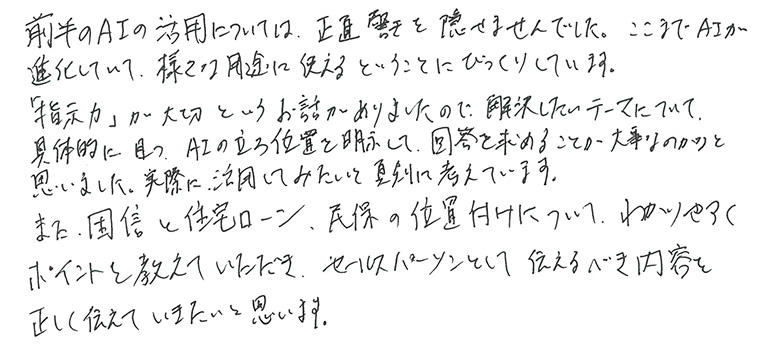 前半のAIの活用については、正直驚きを隠せませんでした。ここまでAIが
進化していて、様々な用途に使えるということにびっくりしています。
「指示力」が大切というお話がありましたので、解決したいテーマについて、
具体的に且つ、AIの立ち位置を明示して、回答を求めることが大事なのかなと
思いました。実際に活用してみたいと真剣に考えています。
また、団信と住宅ローン、民保の位置付けについて、わかりやすく
ポイントを教えていただき、セールスパーソンとして伝えるべき内容を
正しく伝えていきたいと思います。